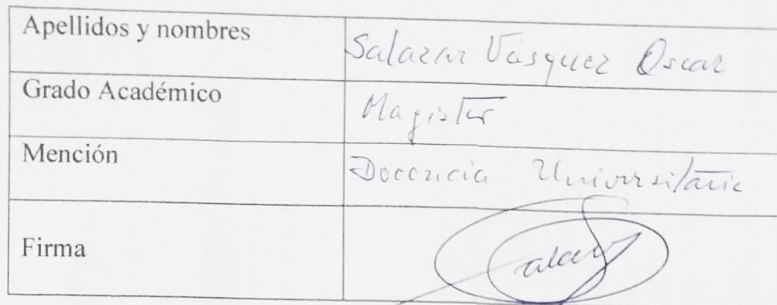 Apellidos y nombres Salazar Vásquez Oscar
Grado Académico Magister
Mención Docencia Universitaria
Firma